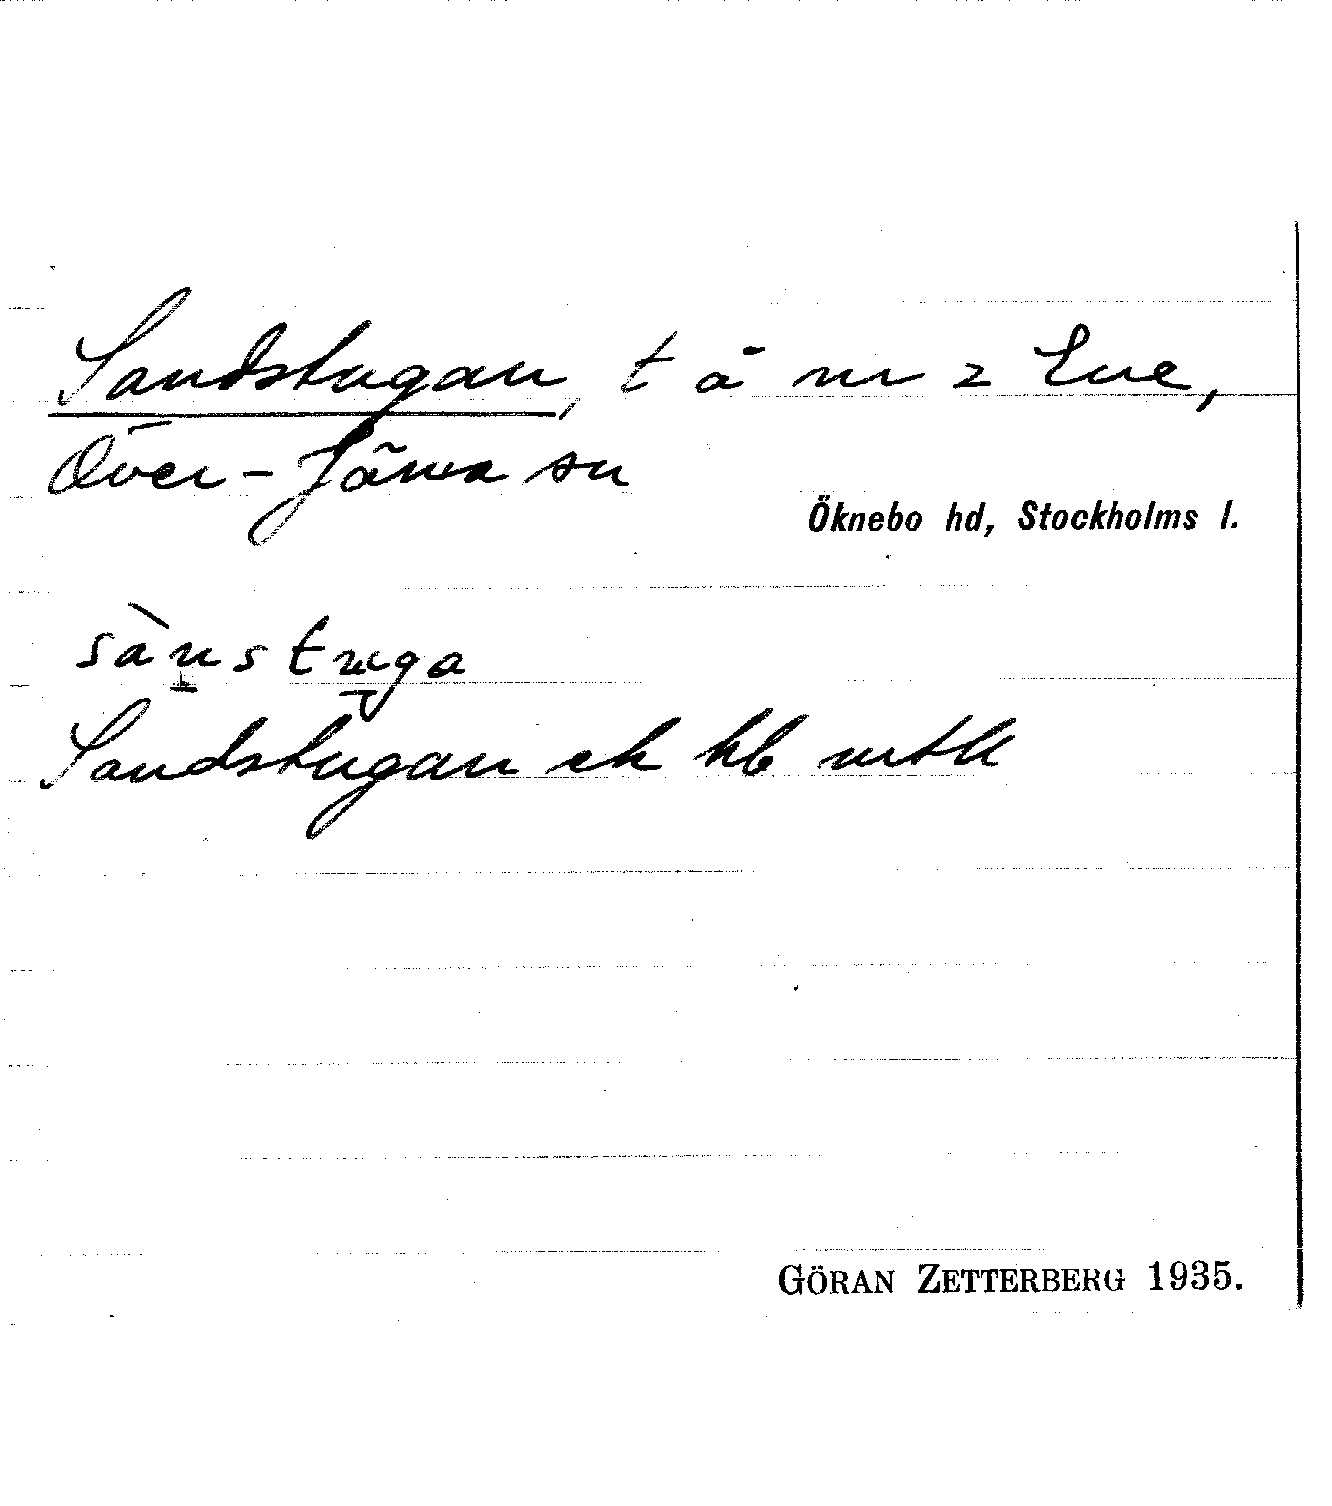 Sandstugan, t å nr 2 Ene,
Över-Järna sn
Öknebo hd, Stockholms l.
sànstuga
Sandstugan ek hb mtl
GÖRAN ZETTERBERG 1935.